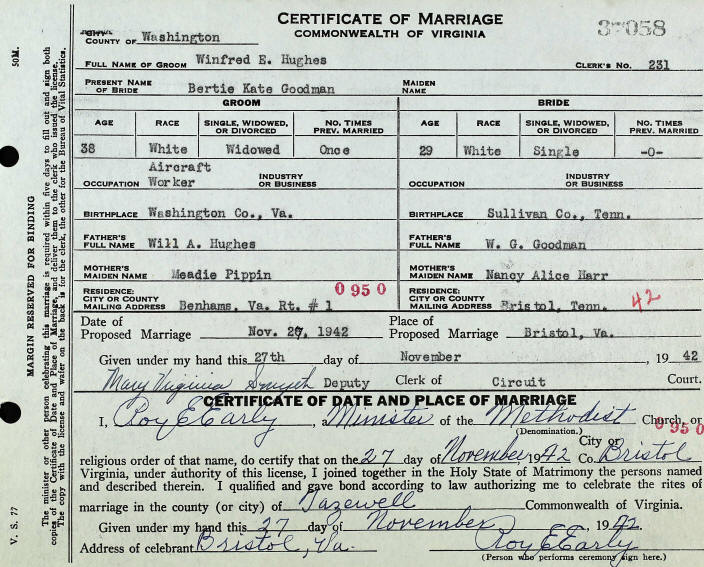 CERTIFICATE OF MARRIAGE
COMMONWEALTH OF VIRGINIA
37058
COUNTY OF Washington
FULL NAME OF GROOM Winfred E. Hughes CLERK'S NO. 231
PRESENT NAME OF BRIDE Bertie Kate Goodman MAIDEN NAME
GROOM BRIDE
AGE RACE SINGLE, WIDOWED, OR DIVORCED NO. TIMES PREV. MARRIED AGE RACE SINGLE, WIDOWED, OR DIVORCED NO. TIMES PREV. MARRIED
38 White Widowed Once 29 White Single -0-
OCCUPATION Aircraft Worker INDUSTRY OR BUSINESS OCCUPATION INDUSTRY OR BUSINESS
BIRTHPLACE Washington Co., Va. BIRTHPLACE Sullivan Co., Tenn.
FATHER'S FULL NAME Will A. Hughes FATHER'S FULL NAME W. G. Goodman
MOTHER'S MAIDEN NAME Meadie Pippin MOTHER'S MAIDEN NAME Nancy Alice Harr
0950
RESIDENCE: CITY OR COUNTY MAILING ADDRESS Benhams, Va. Rt. # 1 RESIDENCE: CITY OR COUNTY MAILING ADDRESS Bristol, Tenn. 42
Date of Proposed Marriage Nov. 27, 1942 Place of Proposed Marriage Bristol, Va.
Given under my hand this 27th day of November, 1942
Mary Virginia Smyth Deputy Clerk of Circuit Court.
CERTIFICATE OF DATE AND PLACE OF MARRIAGE
I, Roy E Early, a Minister of the Methodist Church, or
(Denomination.) 0950
religious order of that name, do certify that on the 27 day of November, 1942 City or Co. Bristol
Virginia, under authority of this license, I joined together in the Holy State of Matrimony the persons named
and described therein. I qualified and gave bond according to law authorizing me to celebrate the rites of
marriage in the county (or city) of Tazewell Commonwealth of Virginia.
Given under my hand this 27 day of November, 1942.
Address of celebrant Bristol, Va. Roy E Early
(Person who performs ceremony sign here.)
50M.
MARGIN RESERVED FOR BINDING
The minister or other person celebrating this marriage is required within five days to fill out and sign both
copies of the Certificate of Date and Place of Marriage, and deliver them to the clerk who issued the license.
The copy with the license and water on the back is for the clerk, the other for the Bureau of Vital Statistics.
V. S. 77